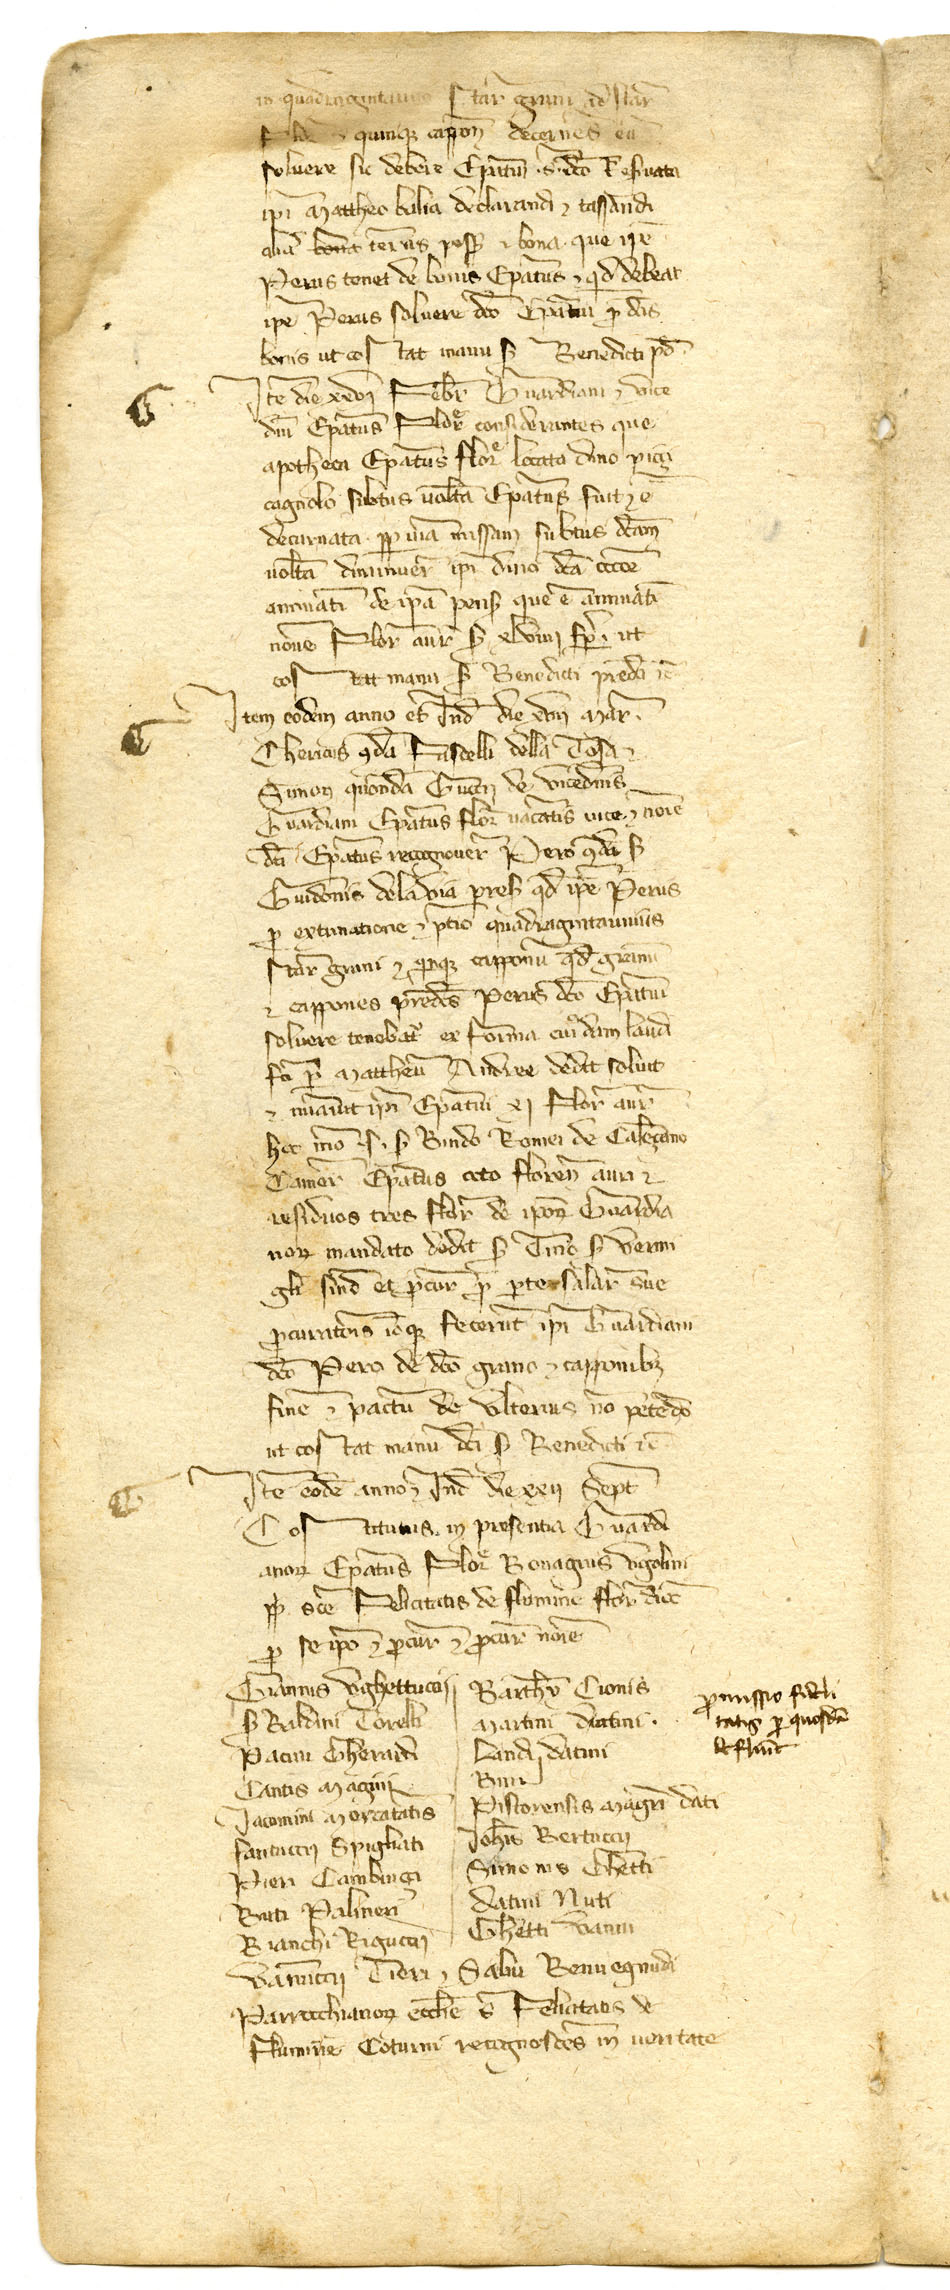 in quadragintaunis star grani ad star
Flor ⁊ quinque capon decernes eu
soluere sic debere Epatui s. dco Reseruata
ipi Mattheo balia declarandi ⁊ tassandi
alia bona terris poss ⁊ bona que ipe
Perus tenet de bonis Epatus ⁊ qd debeat
ipe Perus soluere dco Epatui p dcis
bonis ut costat manu s Benedicti pd
Ite die xxvj Febr Guardiani ⁊ vice
dni Epatus Flor considerantes que
apotheca Epatus flor locata dino picij
cagnolo subtus uolta Epatus fuit ⁊ e
decurnata pp uia missam subtus dcam
uolta diminuer ipi dino dca occoe
annuati de ipa pens que e annuati
none Flor aur s xlviiij sp. ut
costat manu s Benedicti predci ⁊c
Item eodem anno et Ind die xviij Mar.
Chericus qda Fastelli della Tosa ⁊
Simon quonda Guccij de Vicednis
Guardiani Epatus flor uacatis uice ⁊ noie
dci Epatus recognouer Pero qda s
Guidonis dela via pres qd ipe Perus
p extimatione ⁊ ptio quadragintaunius
star grani ⁊ quinque capponu qd granu
⁊ cappones predcos Perus dco Epatui
soluere tenebat ex forma cuiusdam laudi
fci p Mattheu Andree dedit soluit
⁊ nuauit ipi Epatui xj Flor aur
hoc mo s. s Bindo Romei de Calenzano
Camer Epatus octo floren auri ⁊
residuos tres flor de ipor Guardia
nor mandato dedit s Tino s Vermi
gli sind et pcur p parte salar sue
pcurationis ioque fecerut ipi Guardiani
dco Pero de dco grano ⁊ capponibz
fine ⁊ pactu de ulterius no petedo
ut costat manu dci s Benedicti ⁊c
Ite eode anno ⁊ Ind die xxij Sept
Costitutus in presentia Guardi
anor Epatus Flor Bonagius Vgolini
pp sce Felicitatis de flumine flor dioc
p se ipo ⁊ pcur ⁊ pcur noie
Giannis Vghettuccij
s Baldini Torelli
Pacini Gherardi
Cantis Magini
Jacomini Mercatatis
Santuccij Spigliati
Pieri Cambingi
Buti Palmeri
Bianchi Riguccij
Barth Cionis
Martini dictini.
Landi datini
Bini
Pistorensis Magri dati
Johis Bertuccij
Simonis Ghetti
datini Nuti
Ghetti Vanni
promissio fideli
tatis p quosda
de flumine
Vannuccij Tieri ⁊ Salui Benuegnudi
Parrochianor ecche s Felicitatis de
Flumine Coturni recognoscetes in ueritate